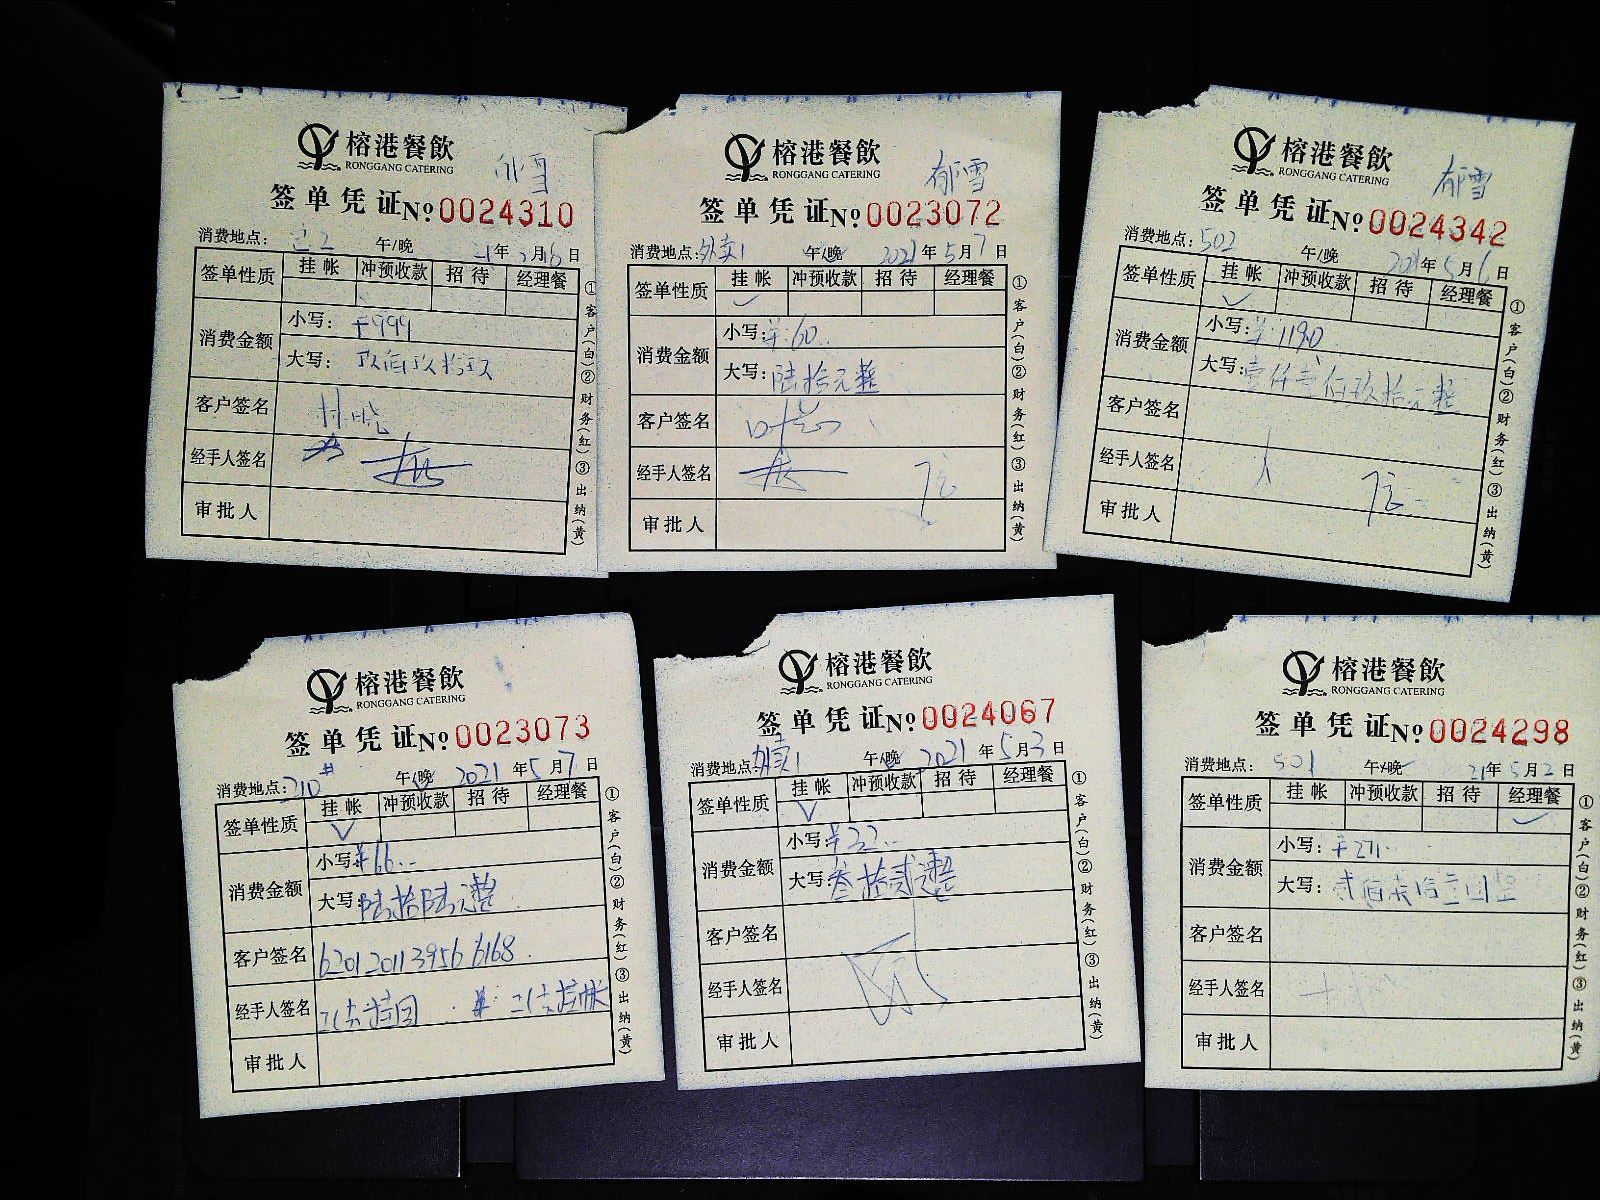 榕港餐飲
RONGGANG CATERING
签单凭证 №0024310
消费地点: 午/晚 年 月6日
签单性质 挂帐 冲预收款 招待 经理餐
消费金额
小写: 999
大写: 玖佰玖拾玖
客户签名
经手人签名
审批人
①客户(白)②财务(红)③出纳(黄)
榕港餐飲
RONGGANG CATERING
郁雪
签单凭证 №0023072
消费地点: 外卖1 午/晚 2021年5月7日
签单性质 挂帐 冲预收款 招待 经理餐
✓
消费金额
小写: ¥60..
大写: 陆拾元整
客户签名
经手人签名
审批人
①客户(白)②财务(红)③出纳(黄)
榕港餐飲
RONGGANG CATERING
郁雪
签单凭证 №0024342
消费地点: 502 午/晚 2021年5月6日
签单性质 挂帐 冲预收款 招待 经理餐
✓
消费金额
小写: ¥1190
大写: 壹仟壹佰玖拾元整
客户签名
经手人签名
审批人
①客户(白)②财务(红)③出纳(黄)
榕港餐飲
RONGGANG CATERING
签单凭证 №0023073
消费地点: 210# 午/晚 2021年5月7日
签单性质 挂帐 冲预收款 招待 经理餐
✓
消费金额
小写: ¥66..
大写: 陆拾陆元整
客户签名 6201201139566168
经手人签名
审批人
①客户(白)②财务(红)③出纳(黄)
榕港餐飲
RONGGANG CATERING
签单凭证 №0024067
消费地点: 外卖1 午/晚 2021年5月3日
签单性质 挂帐 冲预收款 招待 经理餐
✓
消费金额
小写: ¥32..
大写: 叁拾贰元整
客户签名
经手人签名
审批人
①客户(白)②财务(红)③出纳(黄)
榕港餐飲
RONGGANG CATERING
签单凭证 №0024298
消费地点: 501 午/晚 21年5月2日
签单性质 挂帐 冲预收款 招待 经理餐
✓
消费金额
小写: 271..
大写:
客户签名
经手人签名
审批人
①客户(白)②财务(红)③出纳(黄)